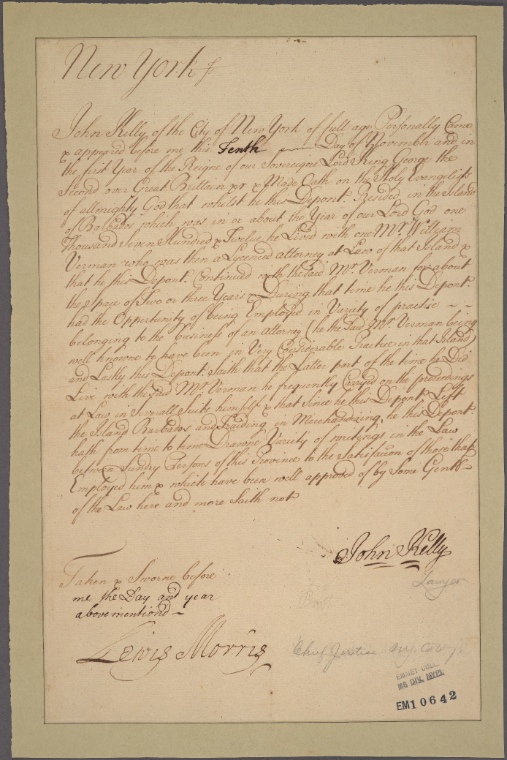 New York ss
John Kelly of the City of New York of full age Personally Came
& appeared before me this Tenth Day of Novembr and in
the first Year of the Reigne of our Sovereigne Lord King George the
Second over Great Brittain &r & Made Oath on the Holy Evangelists
of allmighty God that whilst he this Depont. Resided in the Island
of Barbados which was in or about the Year of our Lord God one
Thousand Seven Hundred & Twelve he Lived with one Mr. William
Verman who was then a Lycenced Attorney at Law of that Island &
that he this Depont. Continued with the said Mr. Verman for about
the space of two or three Years & During that time he this Depont.
had the Opportunity of being Employed in Variety of practice
belonging to the business of an Attorney (he the said Mr. Verman being
well knowne to have been in Very Considerable Practice in that Island)
and Lastly this Depont. saith that the Latter part of the time he Did
Live with the said Mr Verman he frequently Carryed on the proceedings
at Law in Severall Suits himself & that Since he this Depont. Left
the Island Barbados and Trading in Merchandizing he this Depont.
hath from time to time Drawne Variety of writeings in the Law
between Sundry Persons of this Province to the Satisfaction of those that
Employed him & which have been well approved of by Some Gentn.
of the Law here and more Saith not
John Kelly
Lawyer
Taken & Sworne before
me the Day and year
abovementiond
Lewis Morris
Chief Justice N.Y. Colony
EMMET COLL.
MS. DIV. DEPT.
EM10642